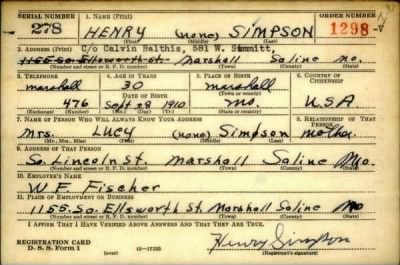 SERIAL NUMBER 1. NAME (Print) ORDER NUMBER
278 HENRY (none) SIMPSON 1298
(First) (Middle) (Last)
2. ADDRESS (Print) C/o Calvin Balthis, 581 W. Summitt,
1155 So. Ellsworth St. Marshall Saline Mo.
(Number and street or R. F. D. number) (Town) (County) (State)
3. TELEPHONE 4. AGE IN YEARS 5. PLACE OF BIRTH 6. COUNTRY OF CITIZENSHIP
marshall 30 marshall
DATE OF BIRTH (Town or county)
476 Sept 28 1910 mo. USA
(Exchange) (Number) (Mo.) (Day) (Yr.) (State or country)
7. NAME OF PERSON WHO WILL ALWAYS KNOW YOUR ADDRESS 8. RELATIONSHIP OF THAT PERSON
Mrs. LUCY (none) Simpson mother
(Mr., Mrs., Miss) (First) (Middle) (Last)
9. ADDRESS OF THAT PERSON
So. Lincoln St. Marshall Saline Mo.
(Number and street or R. F. D. number) (Town) (County) (State)
10. EMPLOYER'S NAME
W. F. Fischer
11. PLACE OF EMPLOYMENT OR BUSINESS
1155 So. Ellsworth St. Marshall Saline Mo
(Number and street or R. F. D. number) (Town) (County) (State)
I AFFIRM THAT I HAVE VERIFIED ABOVE ANSWERS AND THAT THEY ARE TRUE.
REGISTRATION CARD
D. S. S. Form 1 (over) 16-17105 Henry Simpson
(Registrant's signature)